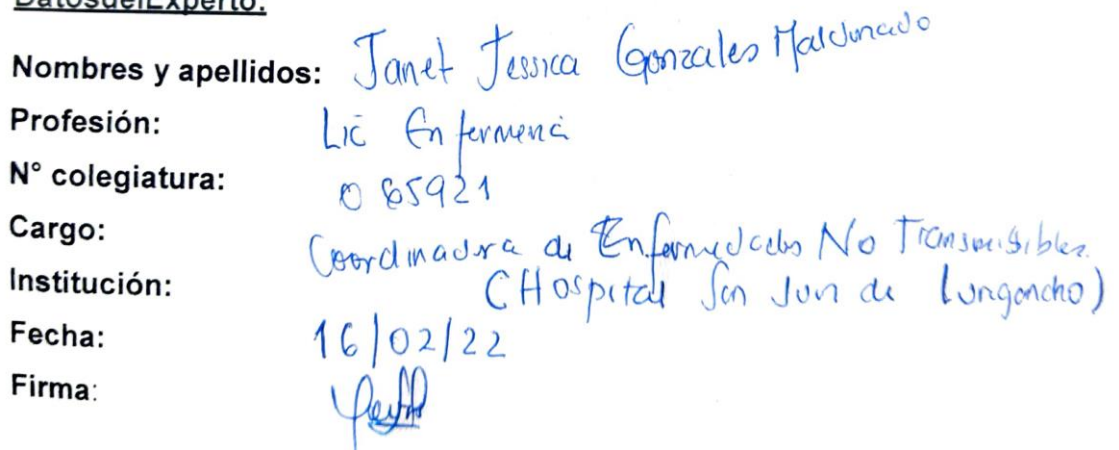 DatosdelExperto:
Nombres y apellidos: Janet Jessica Gonzales Maldonado
Profesión: Lic Enfermería
N° colegiatura: 065921
Cargo: Coordinadora de Enfermedades No Transmisibles
Institución: (Hospital San Juan de Lurigancho)
Fecha: 16/02/22
Firma: